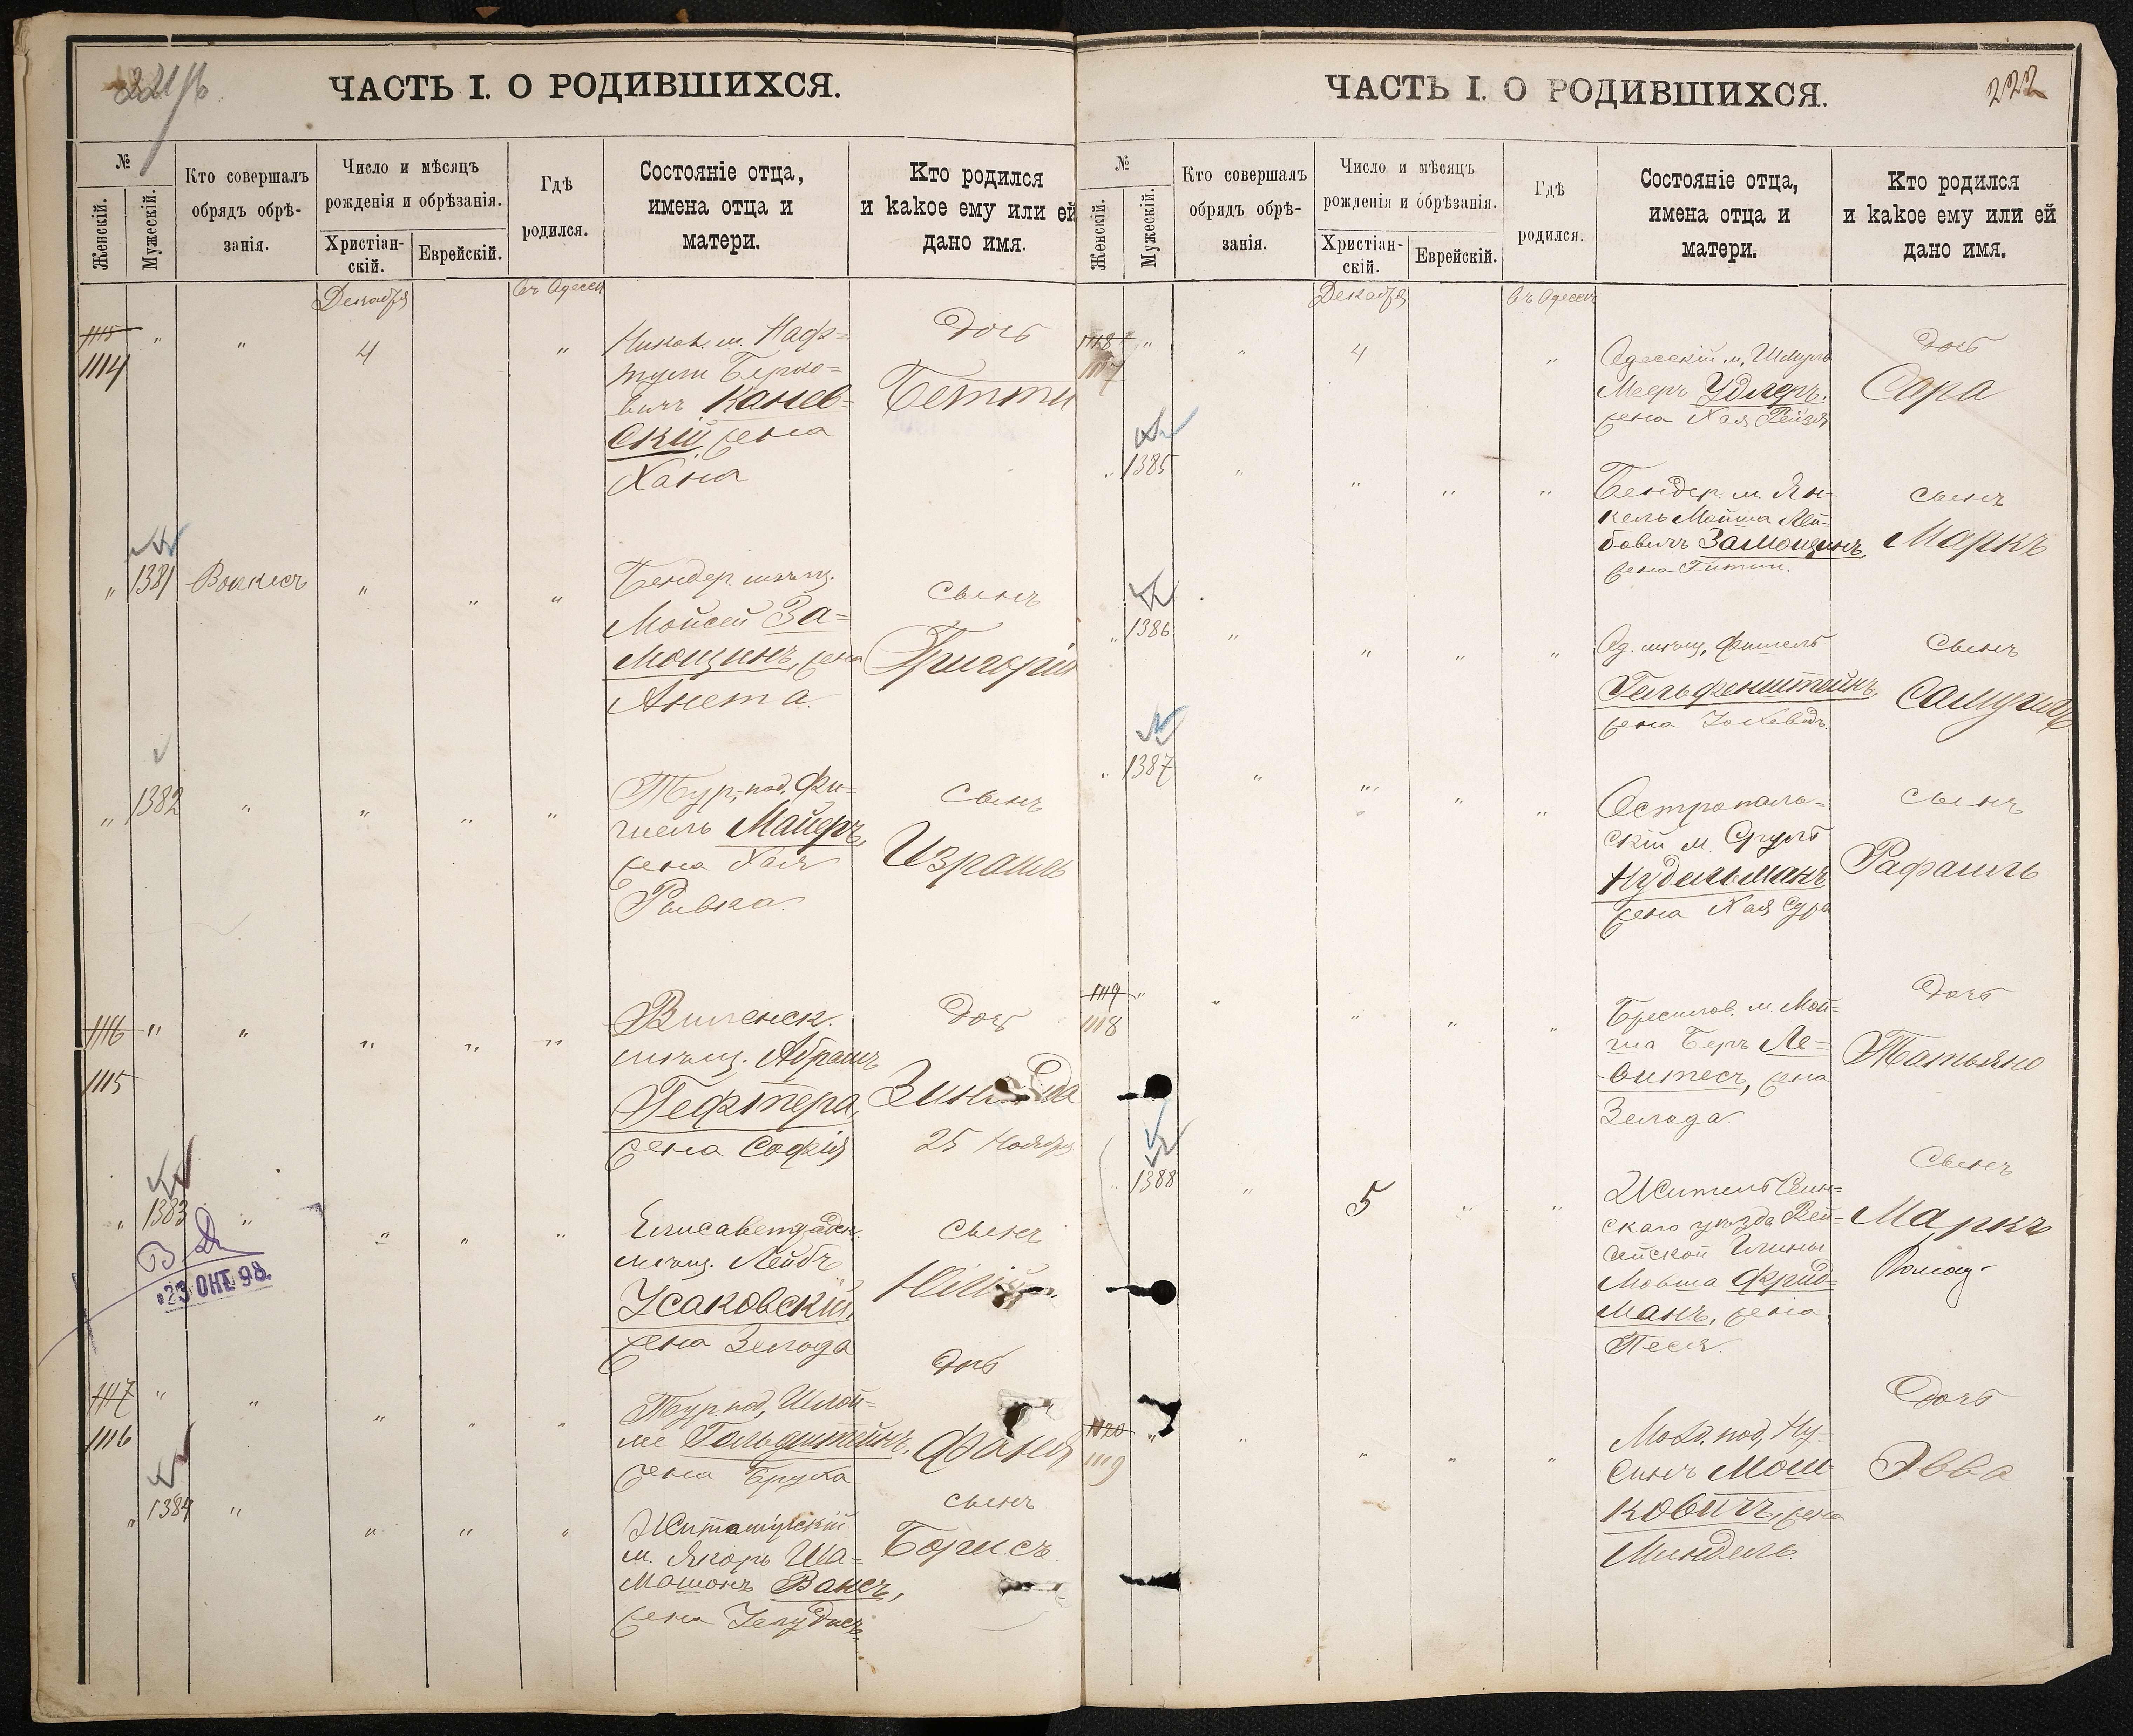 ЧАСТЬ I. О РОДИВШИХСЯ.
№
Женскій.
Мужескій.
Кто совершалъ
обрядъ обрѣ-
занія.
Число и мѣсяцъ
рожденія и обрѣзанія.
Христіан-
скій.
Еврейскій.
Гдѣ
родился.
Состояніе отца,
имена отца и
матери.
Кто родился
и какое ему или ей
дано имя.
Декабря
въ Одессѣ
1115 " " 4 "
1114
Никол. м. Наф=
тули Берко=
вичъ Канев=
скій, жена
Хана
Дочь
Бетти
" 1381 " " "
Бендер. мѣщ.
Мойсей За=
мощинъ, жена
Анета.
сынъ
Григорій
" 1382 " " " " "
Тур. под. Фи=
шель Майеръ,
жена Хая
Ривка.
сынъ
Израиль
1116 " " " " "
1115
Виленск.
мѣщ. Абрамъ
Гефтера,
жена Софія
Дочь
25 Ноября
" 1383 " " " "
23 ОКТ. 98
Елисаветградск.
мѣщ. Лейбъ
Усаковскій,
жена Зелода
сынъ
1117 " " " " "
1116
Тур. под. Шлой=
ме Гольдштейнъ,
жена Бруха
дочь
Фаня
" 1384 " " " "
Житомірскій
м. Ша=
Вайсъ,
жена
сынъ
Борисъ
222
ЧАСТЬ I. О РОДИВШИХСЯ.
№
Женскій.
Мужескій.
Кто совершалъ
обрядъ обрѣ-
занія.
Число и мѣсяцъ
рожденія и обрѣзанія.
Христіан-
скій.
Еврейскій.
Гдѣ
родился.
Состояніе отца,
имена отца и
матери.
Кто родился
и какое ему или ей
дано имя.
Декабря
въ Одессѣ
1118 " " 4 "
1117
Одесскій м. Шмуль
Мееръ Удлеръ.
жена Хая Рейзя
дочь
Сара
" 1385 " " " "
Бендер. м. Ян-
кель Мойша Лей=
бовичъ Замощинъ,
жена Гитти.
сынъ
Маркъ
" 1386 " " " "
Од. мѣщ. Фишель
Гельфенштейнъ,
жена Іохеведъ.
сынъ
Самуилъ
" 1387 " " " "
Острополь=
скій м. Сруль
Нудельманъ
жена Хая Сура
сынъ
Рафаилъ
1119 " " " " "
1118
м. Мой=
ша Беръ Ле=
витесъ, жена
Зелода.
дочь
Татьяна
" 1388 " 5 " "
Житель
скаго уѣзда Вей=
сейской
Мовша Фрид=
манъ, жена
Песя.
Сынъ
Маркъ
1120 " " " " "
1119
под. Ну=
синъ Мош=
ковичъ, жена
Миндель.
Дочь
Эвва